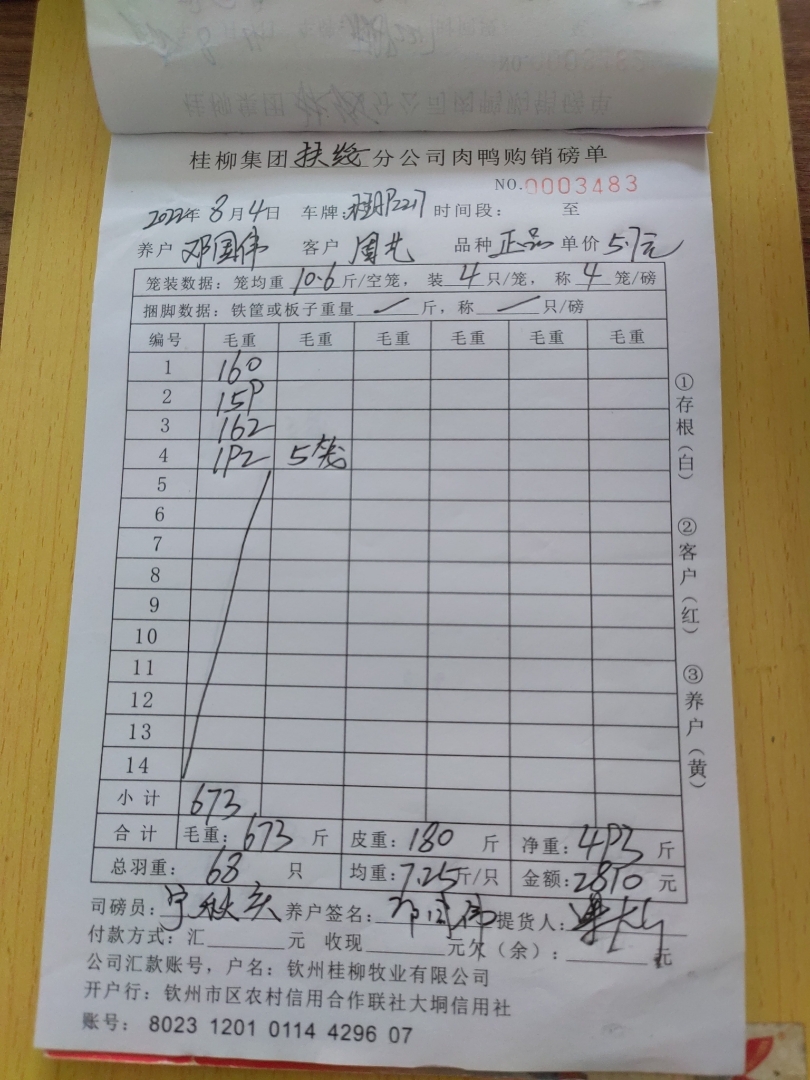 桂柳集团扶绥分公司肉鸭购销磅单
NO.0003483
2022年8月4日 车牌: 时间段: 至
养户 邓国伟 客户 周先 品种 正品 单价 5.7元
笼装数据: 笼均重 10.6 斤/空笼, 装 4 只/笼, 称 4 笼/磅
捆脚数据: 铁筐或板子重量 / 斤, 称 / 只/磅
编号 毛重 毛重 毛重 毛重 毛重 毛重
1 160
2 159
3 162
4 192 5笼
5
6
7
8
9
10
11
12
13
14
小计 673
合计 毛重: 673 斤 皮重: 180 斤 净重: 493 斤
总羽重: 68 只 均重: 7.25斤/只 金额: 2810 元
司磅员: 养户签名: 邓国伟 提货人:
付款方式: 汇 元 收现 元 欠(余): 元
公司汇款账号, 户名: 钦州桂柳牧业有限公司
开户行: 钦州市区农村信用合作联社大垌信用社
账号: 8023 1201 0114 4296 07
①存根(白) ②客户(红) ③养户(黄)